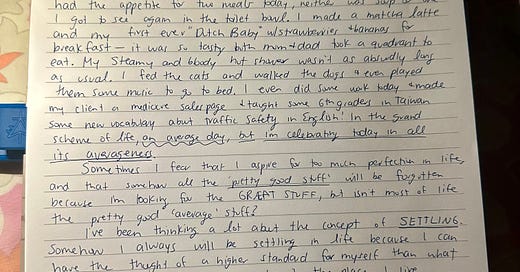 had the appetite for two meals today, neither was
I got to see again in the toilet bowl. I made a matcha latte
and my first ever "Dutch Baby" w/strawberries + bananas for
breakfast – it was so tasty both mum + dad took a quadrant to
eat. My steamy and shower wasn't as absurdly long
as usual. I fed the cats and walked the dogs + even played
them some music to go to bed. I even did some work today + made
my client a medicare sales page + taught some 6th graders in Taiwan
some new vocabulary about traffic safety in English! In the grand
scheme of life, an average day, but I'm celebrating today in all
its averageness.
Sometimes I fear that I aspire for too much perfection in life,
and that somehow all the 'pretty good stuff' will be forgotten
because I'm looking for the GREAT STUFF, but isn't most of life
the pretty good 'average' stuff?
I've been thinking a lot about the concept of SETTLING.
Somehow I always will be settling in life because I can
have the thought of a higher standard for myself than what
the place I live